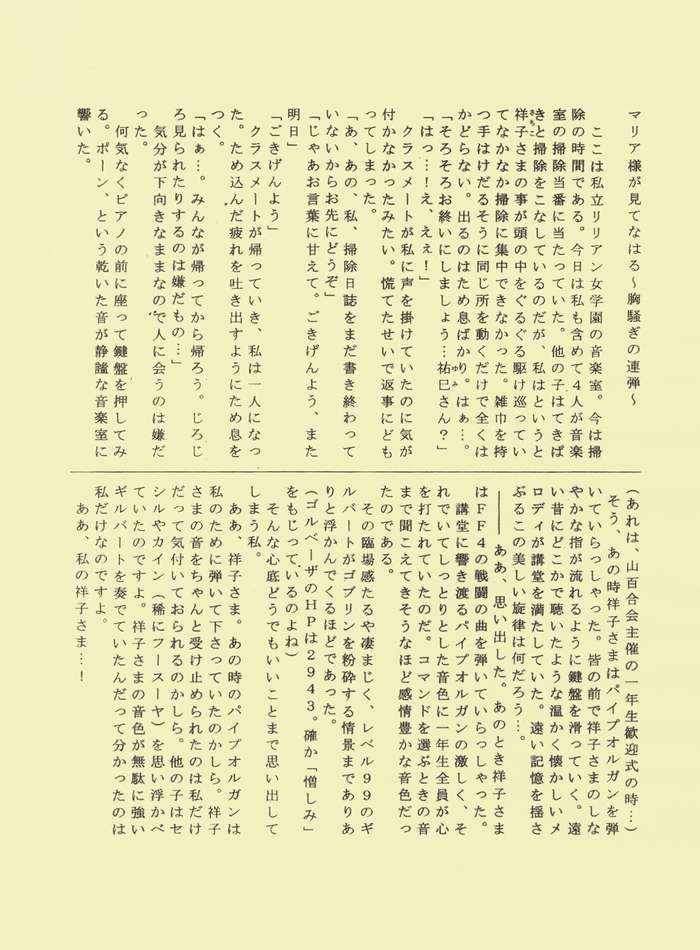 マリア様が見てなはる～胸騒ぎの連弾～
ここは私立リリアン女学園の音楽室。今は掃
除の時間である。今日は私も含めて４人が音楽
室の掃除当番に当たっていた。他の子はてきぱ
きと掃除をこなしているのだが、私はというと
祥子さまの事が頭の中をぐるぐる駆け巡ってい
てなかなか掃除に集中できなかった。雑巾を持
つ手はけだるそうに同じ所を動くだけで全くは
かどらない。出るのはため息ばかり。はぁ…。
「そろそろお終いにしましょう…祐巳さん？」
「はっ…！え、えぇ！」
クラスメートが私に声を掛けていたのに気が
付かなかったみたい。慌てたせいで返事にども
ってしまった。
「あ、あの、私、掃除日誌をまだ書き終わって
いないからお先にどうぞ」
「じゃあお言葉に甘えて。ごきげんよう、また
明日」
「ごきげんよう」
クラスメートが帰っていき、私は一人になっ
た。ため込んだ疲れを吐き出すようにため息を
つく。
「はぁ…。みんなが帰ってから帰ろう。じろじ
ろ見られたりするのは嫌だもの…」
気分が下向きなままなので人に会うのは嫌だ
った。
何気なくピアノの前に座って鍵盤を押してみ
る。ポーン、という乾いた音が静謐な音楽室に
響いた。
（あれは、山百合会主催の一年生歓迎式の時…）
そう、あの時祥子さまはパイプオルガンを弾
いていらっしゃった。皆の前で祥子さまのしな
やかな指が流れるように鍵盤を滑っていく。遠
い昔にどこかで聴いたような温かく懐かしいメ
ロディが講堂を満たしていた。遠い記憶を揺さ
ぶるこの美しい旋律は何だろう…。
――― ああ、思い出した。あのとき祥子さま
はＦＦ４の戦闘の曲を弾いていらっしゃった。
講堂に響き渡るパイプオルガンの激しく、そ
れでいてしっとりとした音色に一年生全員が心
を打たれていたのだ。コマンドを選ぶときの音
まで聞こえてきそうなほど感情豊かな音色だっ
たのである。
その臨場感たるや凄まじく、レベル９９のギ
ルバートがゴブリンを粉砕する情景まであり あ
りと浮かんでくるほどであった。
（ゴルベーザのＨＰは２９４３。確か「憎しみ」
をもじっているのよね）
そんな心底どうでもいいことまで思い出して
しまう私。
ああ、祥子さま。あの時のパイプオルガンは
私のために弾いて下さっていたのかしら。祥子
さまの音をちゃんと受け止められたのは私だけ
だって気付いておられるのかしら。他の子はセ
シルやカイン（稀にフースーヤ）を思い浮かべ
ていたのですよ。祥子さまの音色が無駄に強い
ギルバートを奏でていたんだって分かったのは
私だけなのですよ。
ああ、私の祥子さま…！